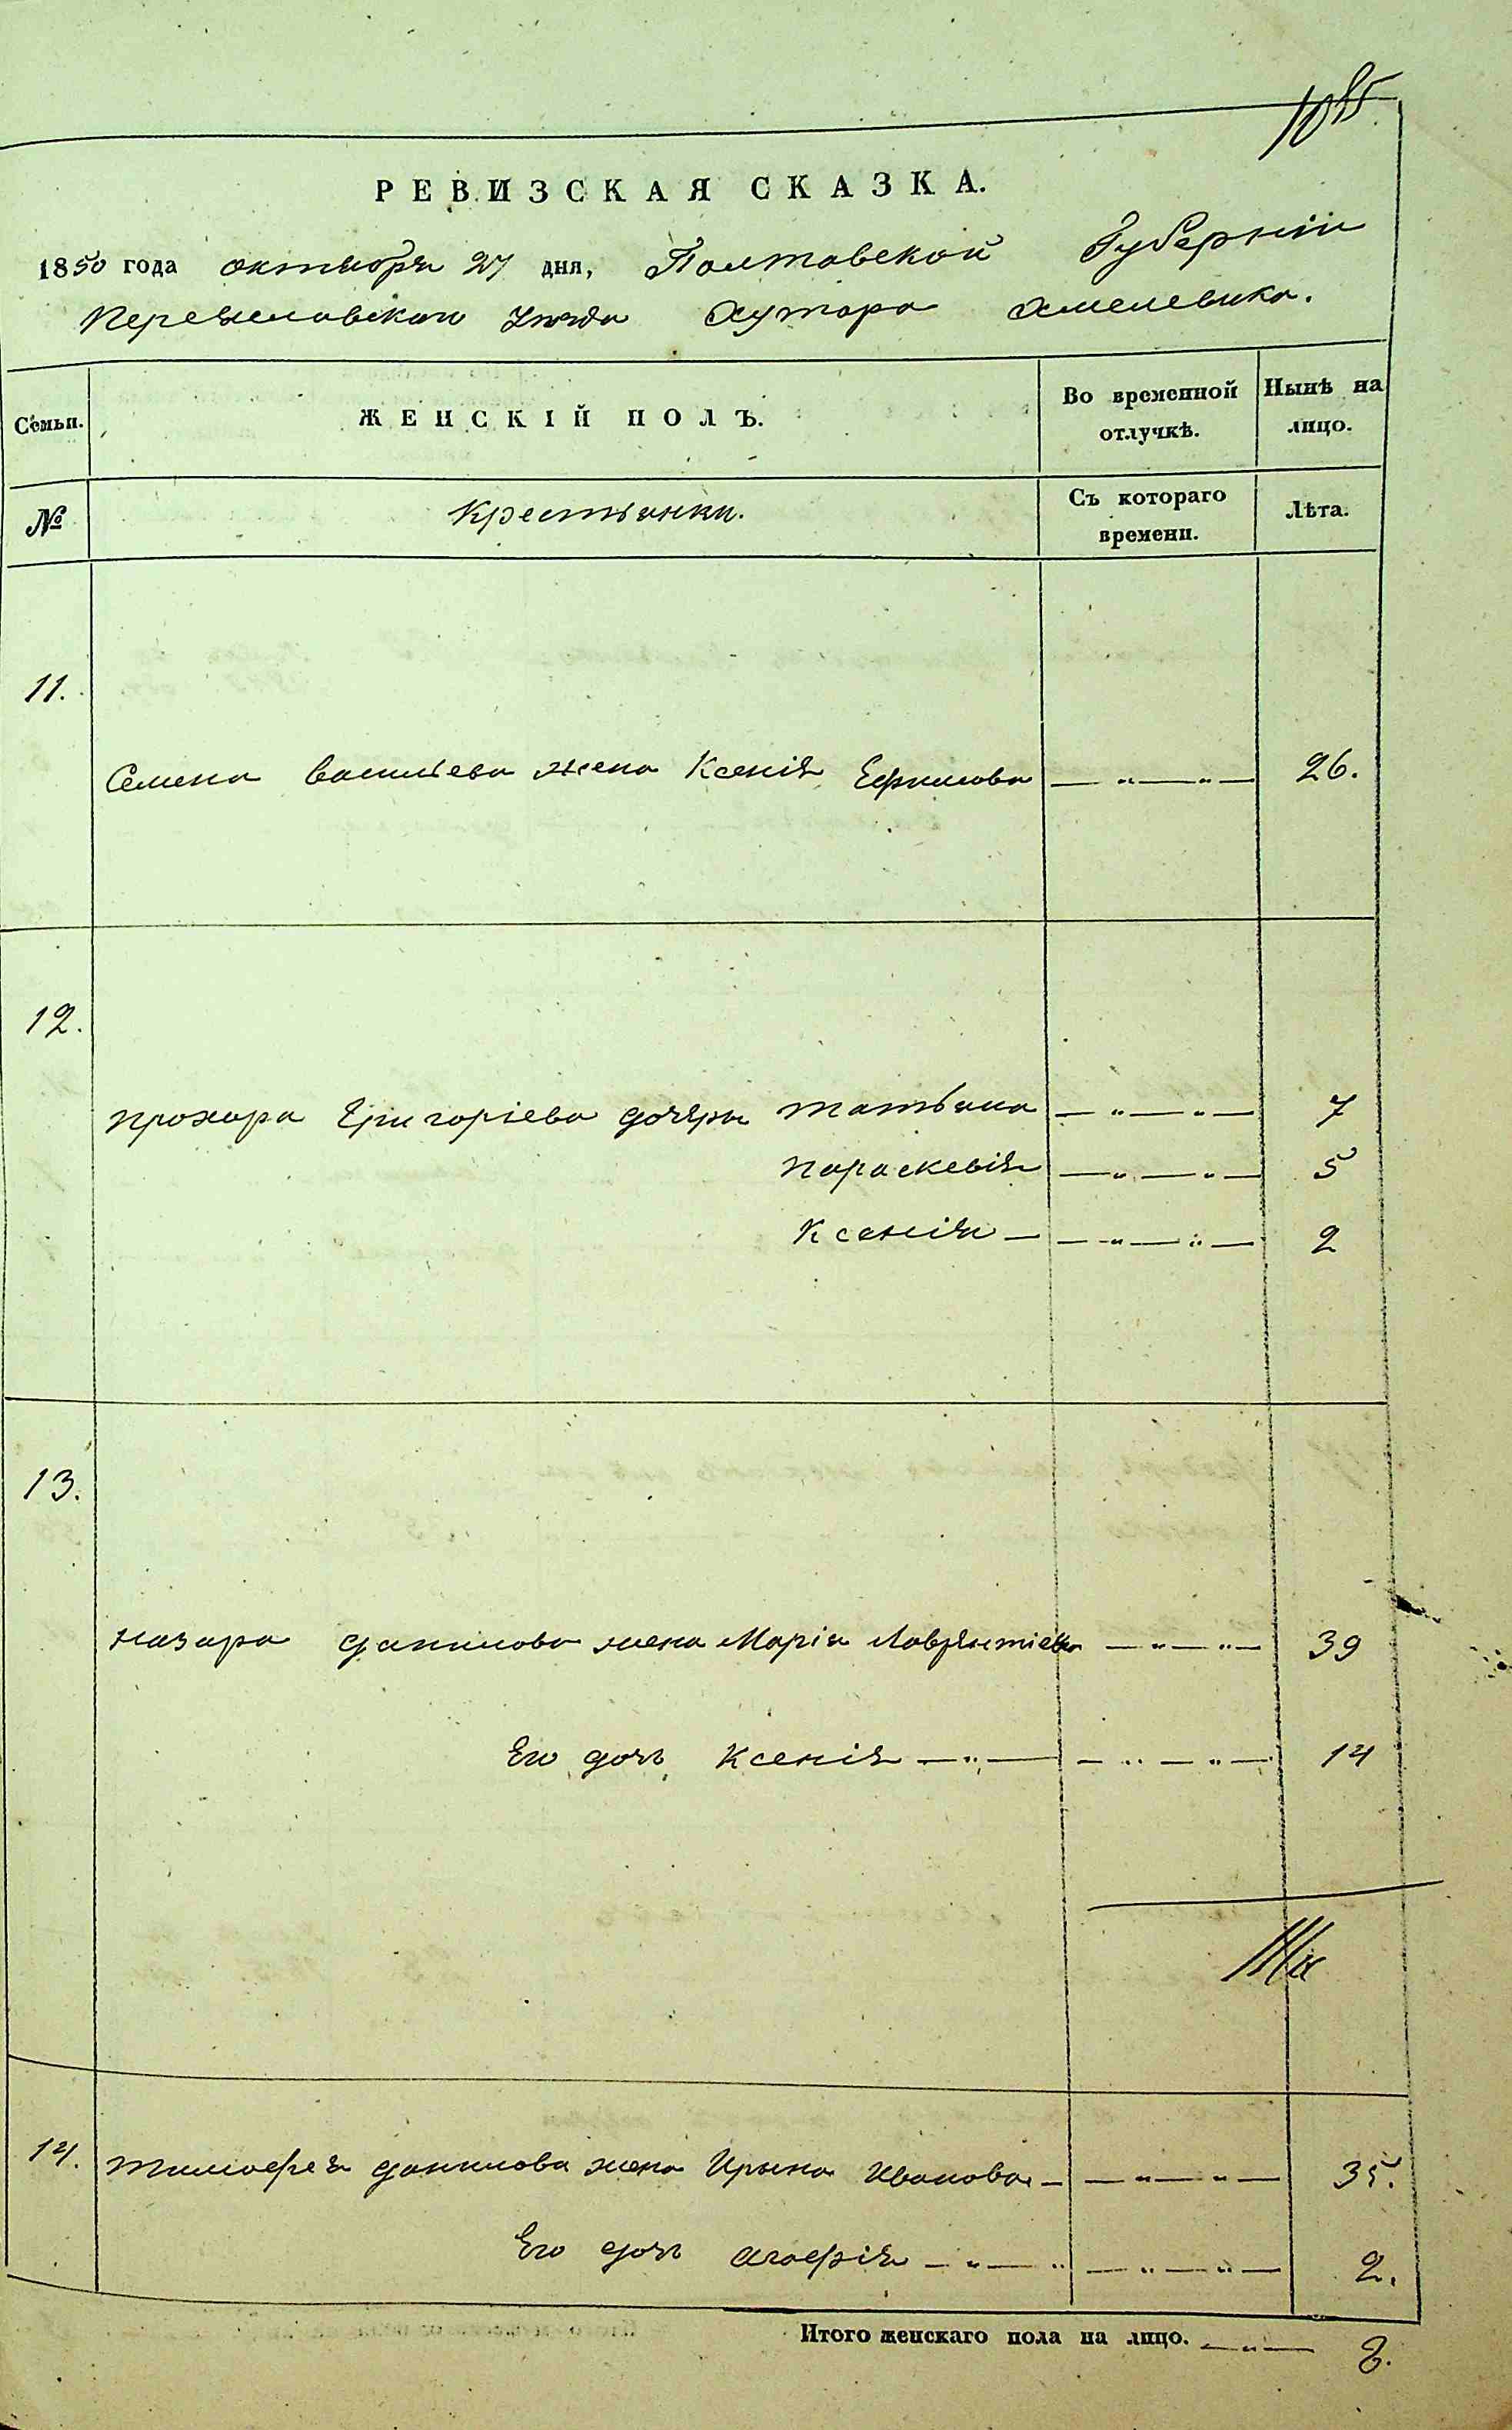 1085
РЕВИЗСКАЯ СКАЗКА.
1850 года октября 27 дня, Полтавской Губернии
Переяславскаго Уезда Хутора Хмелевика.
Семьи. ЖЕНСКІЙ ПОЛЪ. Во временной отлучкѣ. Нынѣ на лицо.
№ Крестьянки. Съ котораго времени. Лѣта.
11.
Семена Васильева жена Ксенія Ефимова — „ — „ — 26.
12.
Прохора Григоріева дочери Татьяна — „ — „ — 7
Параскевія — „ — „ — 5
Ксенія — — „ — „ — 2
13.
Назара Данилова жена Марія Лаврентіева — „ — „ — 39
Его дочь Ксенія — „ — — „ — „ — 14
14. Тимофея Данилова жена Ирына Иванова — — „ — „ — 35.
Его дочь Агафія — „ — „ — „ — „ — 2.
Итого женскаго пола на лицо. — „ — 8.